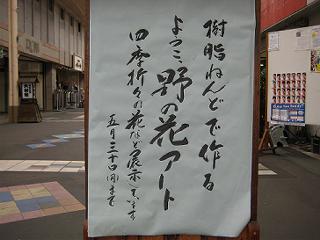 樹脂ねんどで作る
よつこ、野の花アート
四季折々の花びど展示しています
五月三十日(月)まで